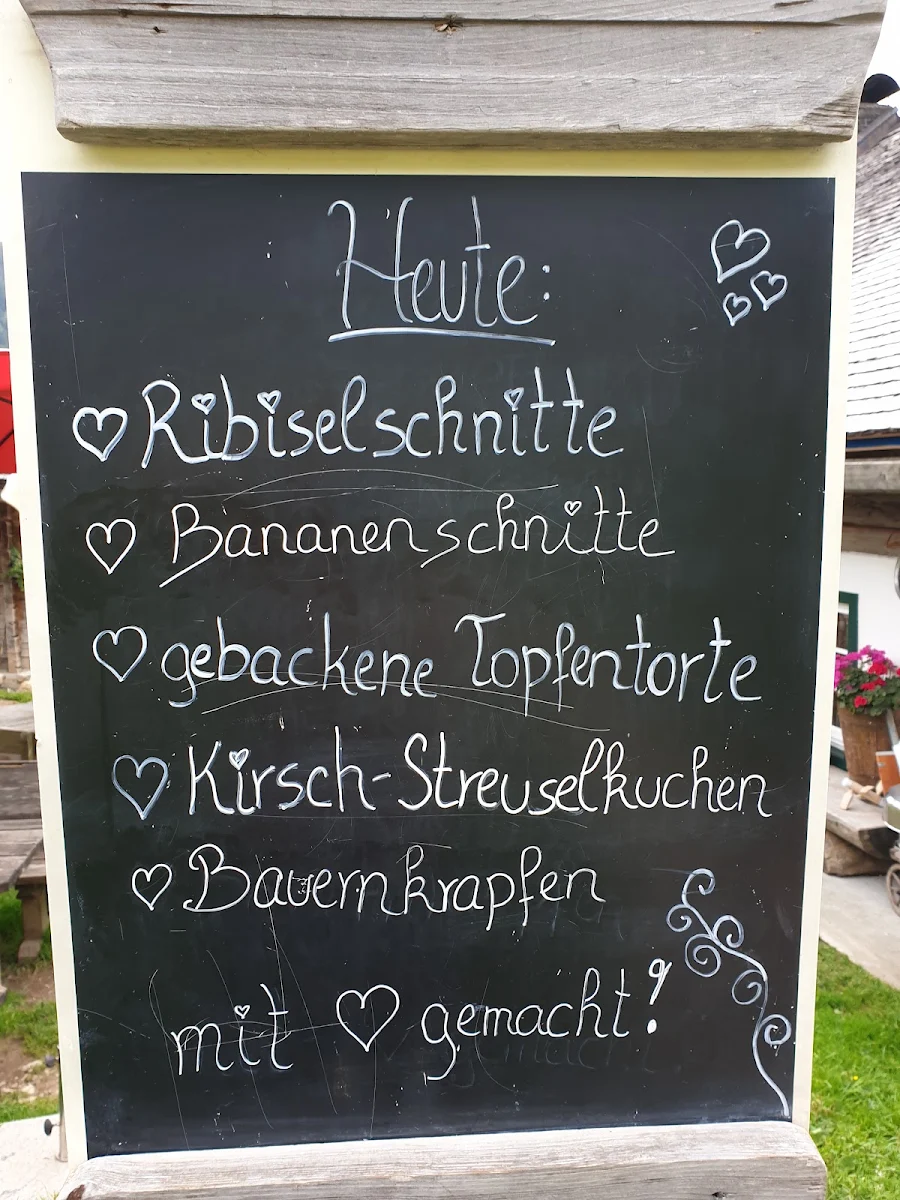 Heute:
Ribiselschnitte
Bananenschnitte
gebackene Topfentorte
Kirsch-Streuselkuchen
Bauernkrapfen
mit ♡ gemacht!